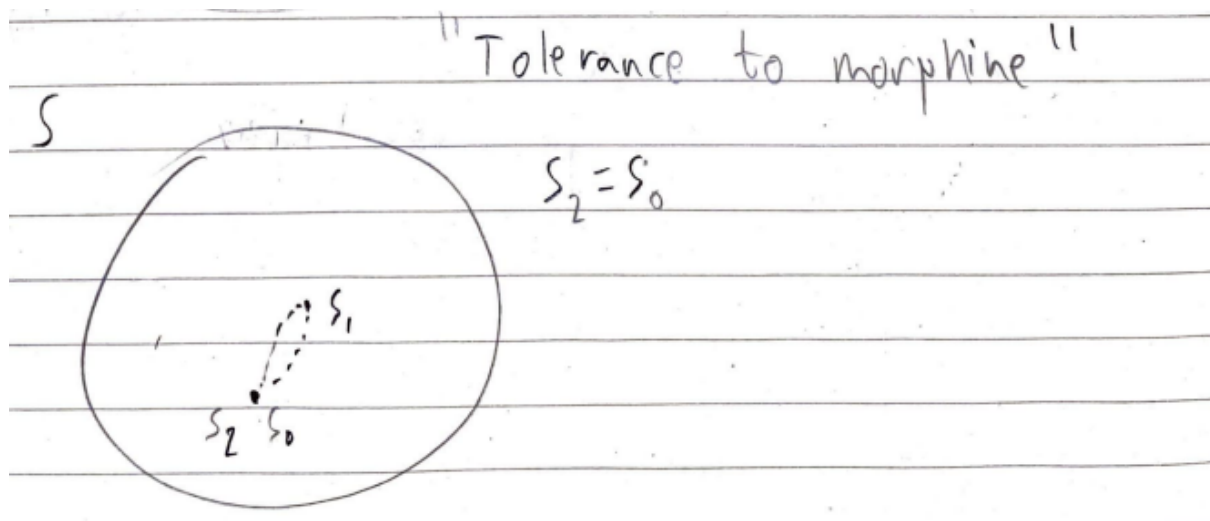 "Tolerance to morphine"
S
S₂ = S₀
S₁
S₂ S₀